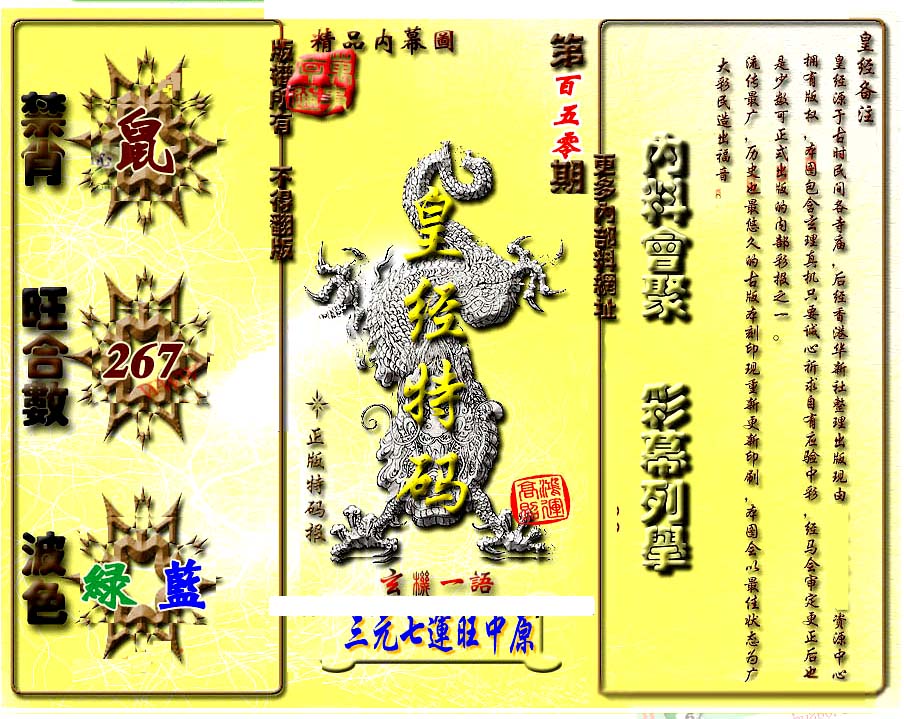 皇经备注
皇经源于古时民间各寺庙，后经香港华新社整理出版现由资源中心
拥有版权，本图包含玄理真机只要诚心祈求自有应验中彩，经马会审定更正后也
是少数可正式出版的内部彩报之一。
流传最广，历史也最悠久的古版本刻印现重新更新印刷，本图会以最佳状态为广
大彩民造出福音
內料會聚
彩幕列舉
更多內部料網址
第百五零期
精品內幕圖
皇经特码
正版特码报
鴻運
高照
玄機一語
三元七運旺中原
版權所有 不得翻版
禁肖
鼠
旺合數
267
波色
綠 藍